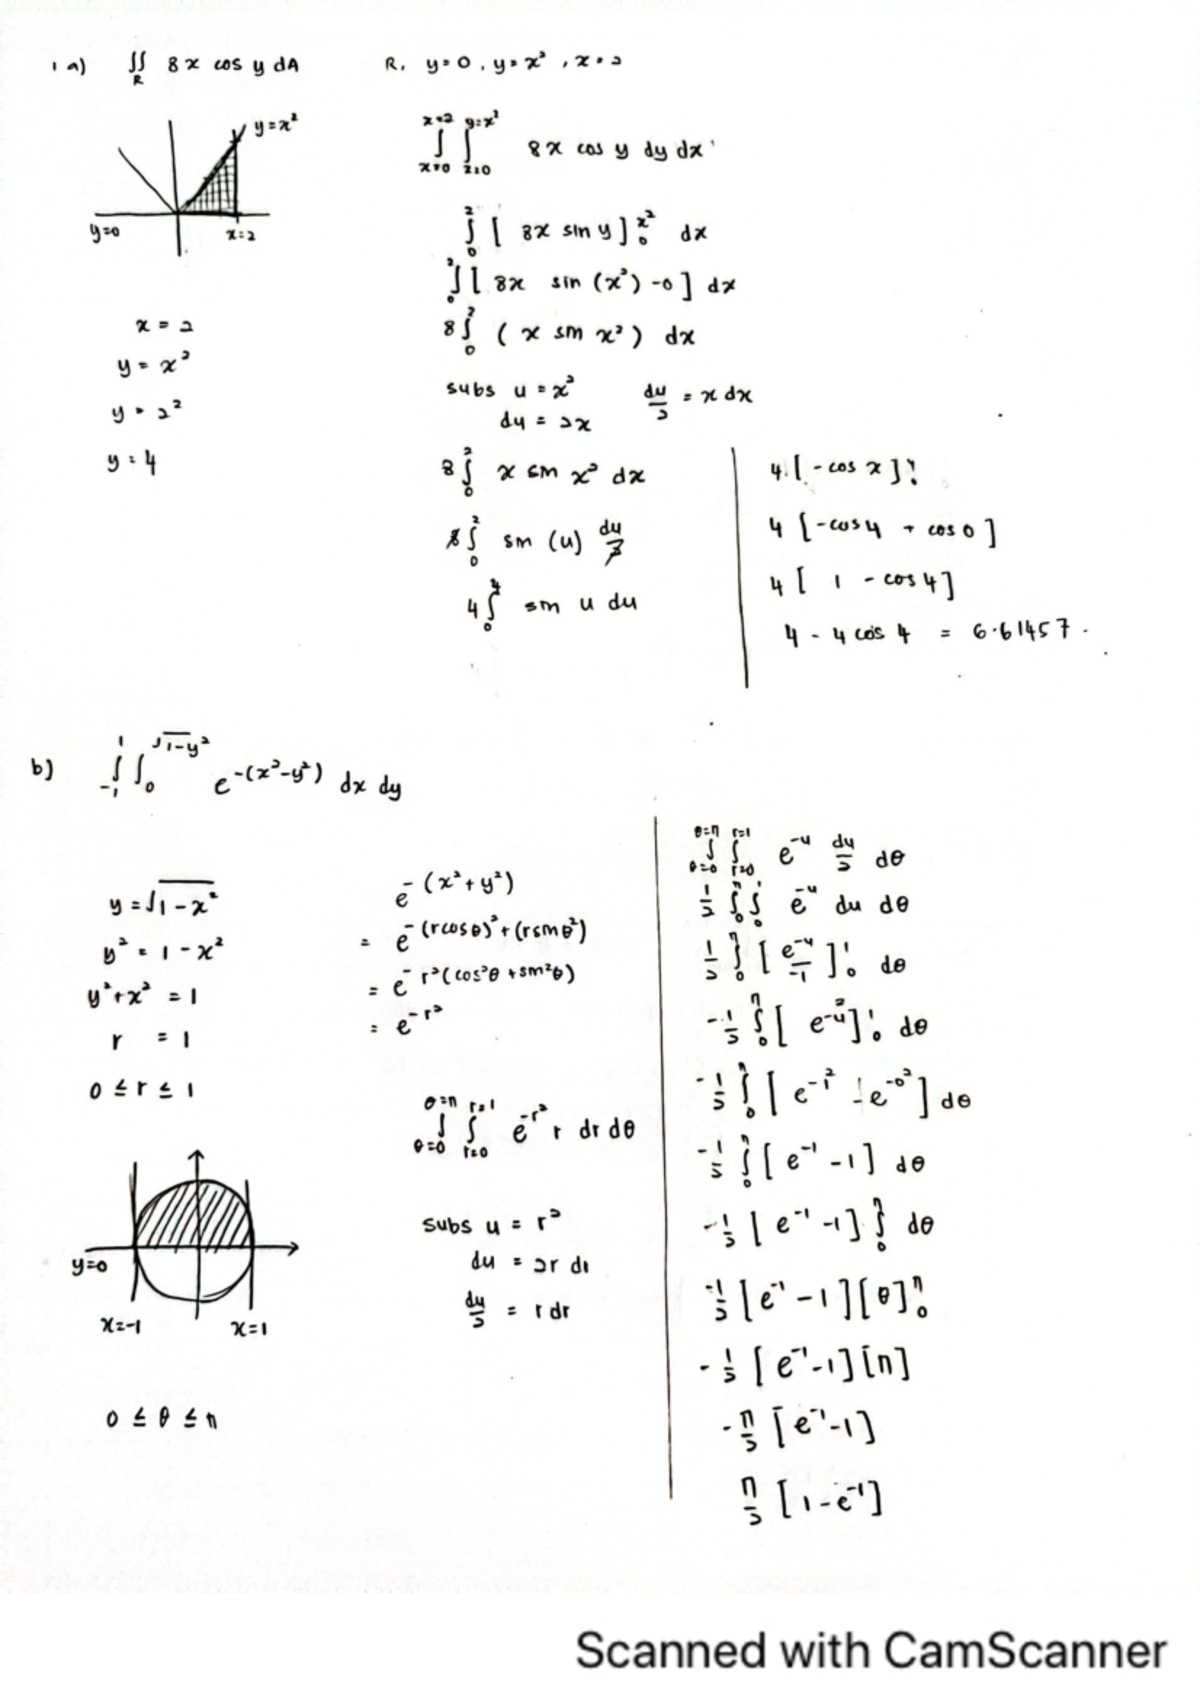 1 a) ∬_R 8x cos y dA R, y=0, y=x², x=2
y=x²
y=0 x=2
∫_{x=0}^{x=2} ∫_{z=0}^{y=x²} 8x cos y dy dx
∫_0^2 [8x sin y]_0^{x²} dx
∫_0^2 [8x sin (x²) -0] dx
8∫_0^2 (x sin x²) dx
x = 2
y = x²
y = 2²
y = 4
subs u = x² du/2 = x dx
du = 2x
8∫_0^2 x sin x² dx
8∫_0^2 sin (u) du/2
4∫_0^4 sin u du
4[-cos x]
4[-cos4 + cos 0]
4[1 - cos 4]
4 - 4 cos 4 = 6.61457.
b) ∫_{-1}^1 ∫_0^{√1-y²} e^{-(x²-y²)} dx dy
y = √1-x²
y² = 1 - x²
y²+x² = 1
r = 1
0 ≤ r ≤ 1
y=0
x=-1 x=1
0 ≤ θ ≤ π
e^-(x²+y²)
= e^-(rcosθ)²+(rsinθ²)
= e^-r²(cos²θ+sin²θ)
= e^-r²
∫_{θ=0}^{θ=π} ∫_{r=0}^{r=1} e^-r² r dr dθ
subs u = r²
du = 2r dr
du/2 = r dr
∫_{θ=0}^{θ=π} ∫_{r=0}^{r=1} e^-u du/2 dθ
1/2 ∫_0^π ∫_0^1 e^-u du dθ
1/2 ∫_0^π [e^-u/-1]_0^1 dθ
-1/2 ∫_0^π [e^-u²]_0^1 dθ
-1/2 ∫_0^π [e^-1² - e^-0²] dθ
-1/2 ∫_0^π [e^-1 -1] dθ
-1/2 [e^-1 -1] ∫_0^π dθ
-1/2 [e^-1 -1][θ]_0^π
-1/2 [e^-1 -1][π]
-π/2 [e^-1 -1]
π/2 [1-e^-1]
Scanned with CamScanner